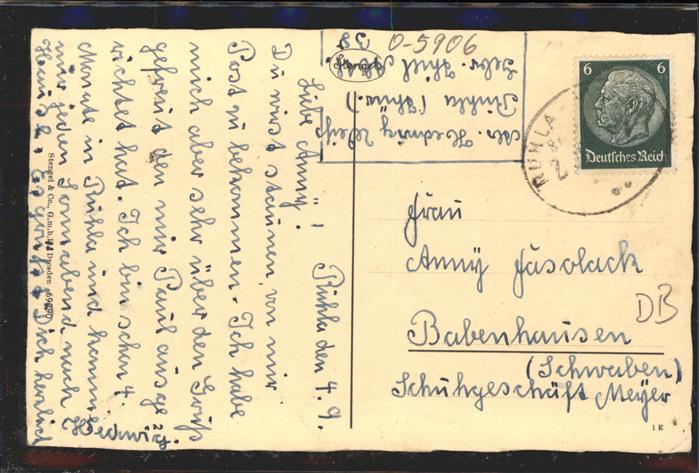 Ruhla den 4. 9.
Liebe Anny!
Du wirst staunen von mir
Post zu bekommen. Ich habe
mich aber sehr über den Gruß
gefreut den mir Paul ausge
richtet hat. Ich bin schon 4
Monate in Ruhla und komme
mir jeden Sonnabend nach
Hause. Es grüßt Dich herzlich
Hedwig
Stengel & Co., G.m.b.H., Dresden 69290
O-5906
38
Stengel
Abs. Hedwig Weiß
Ruhla (Thür.)
Gebr. Thiel
6 6
Deutsches Reich
RUHLA
2
Frau
Anny
Babenhausen
(Schwaben)
Schuhgeschäft Meyer
DB
1 E